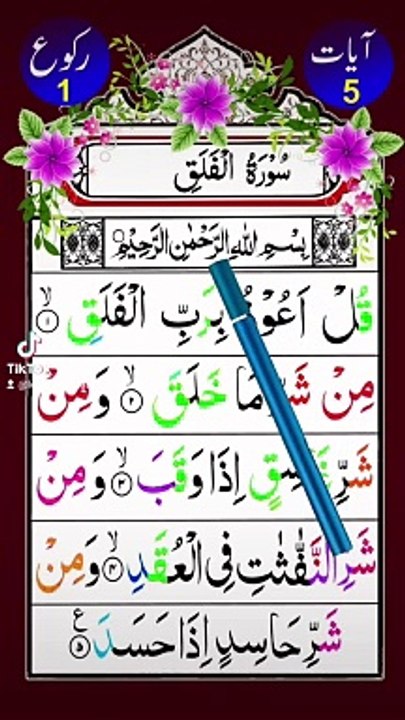 آیات
5
رکوع
1
سُوْرَةُ الْفَلَقِ
بِسْمِ اللهِ الرَّحْمٰنِ الرَّحِيْمِ
قُلْ اَعُوْذُ بِرَبِّ الْفَلَقِ ۙ۱
مِنْ شَرِّ مَا خَلَقَ ۙ۲ وَمِنْ
شَرِّ غَاسِقٍ اِذَا وَقَبَ ۙ۳ وَمِنْ
شَرِّ النَّفّٰثٰتِ فِی الْعُقَدِ ۙ۴ وَمِنْ
شَرِّ حَاسِدٍ اِذَا حَسَدَ ۵ ع
TikTok